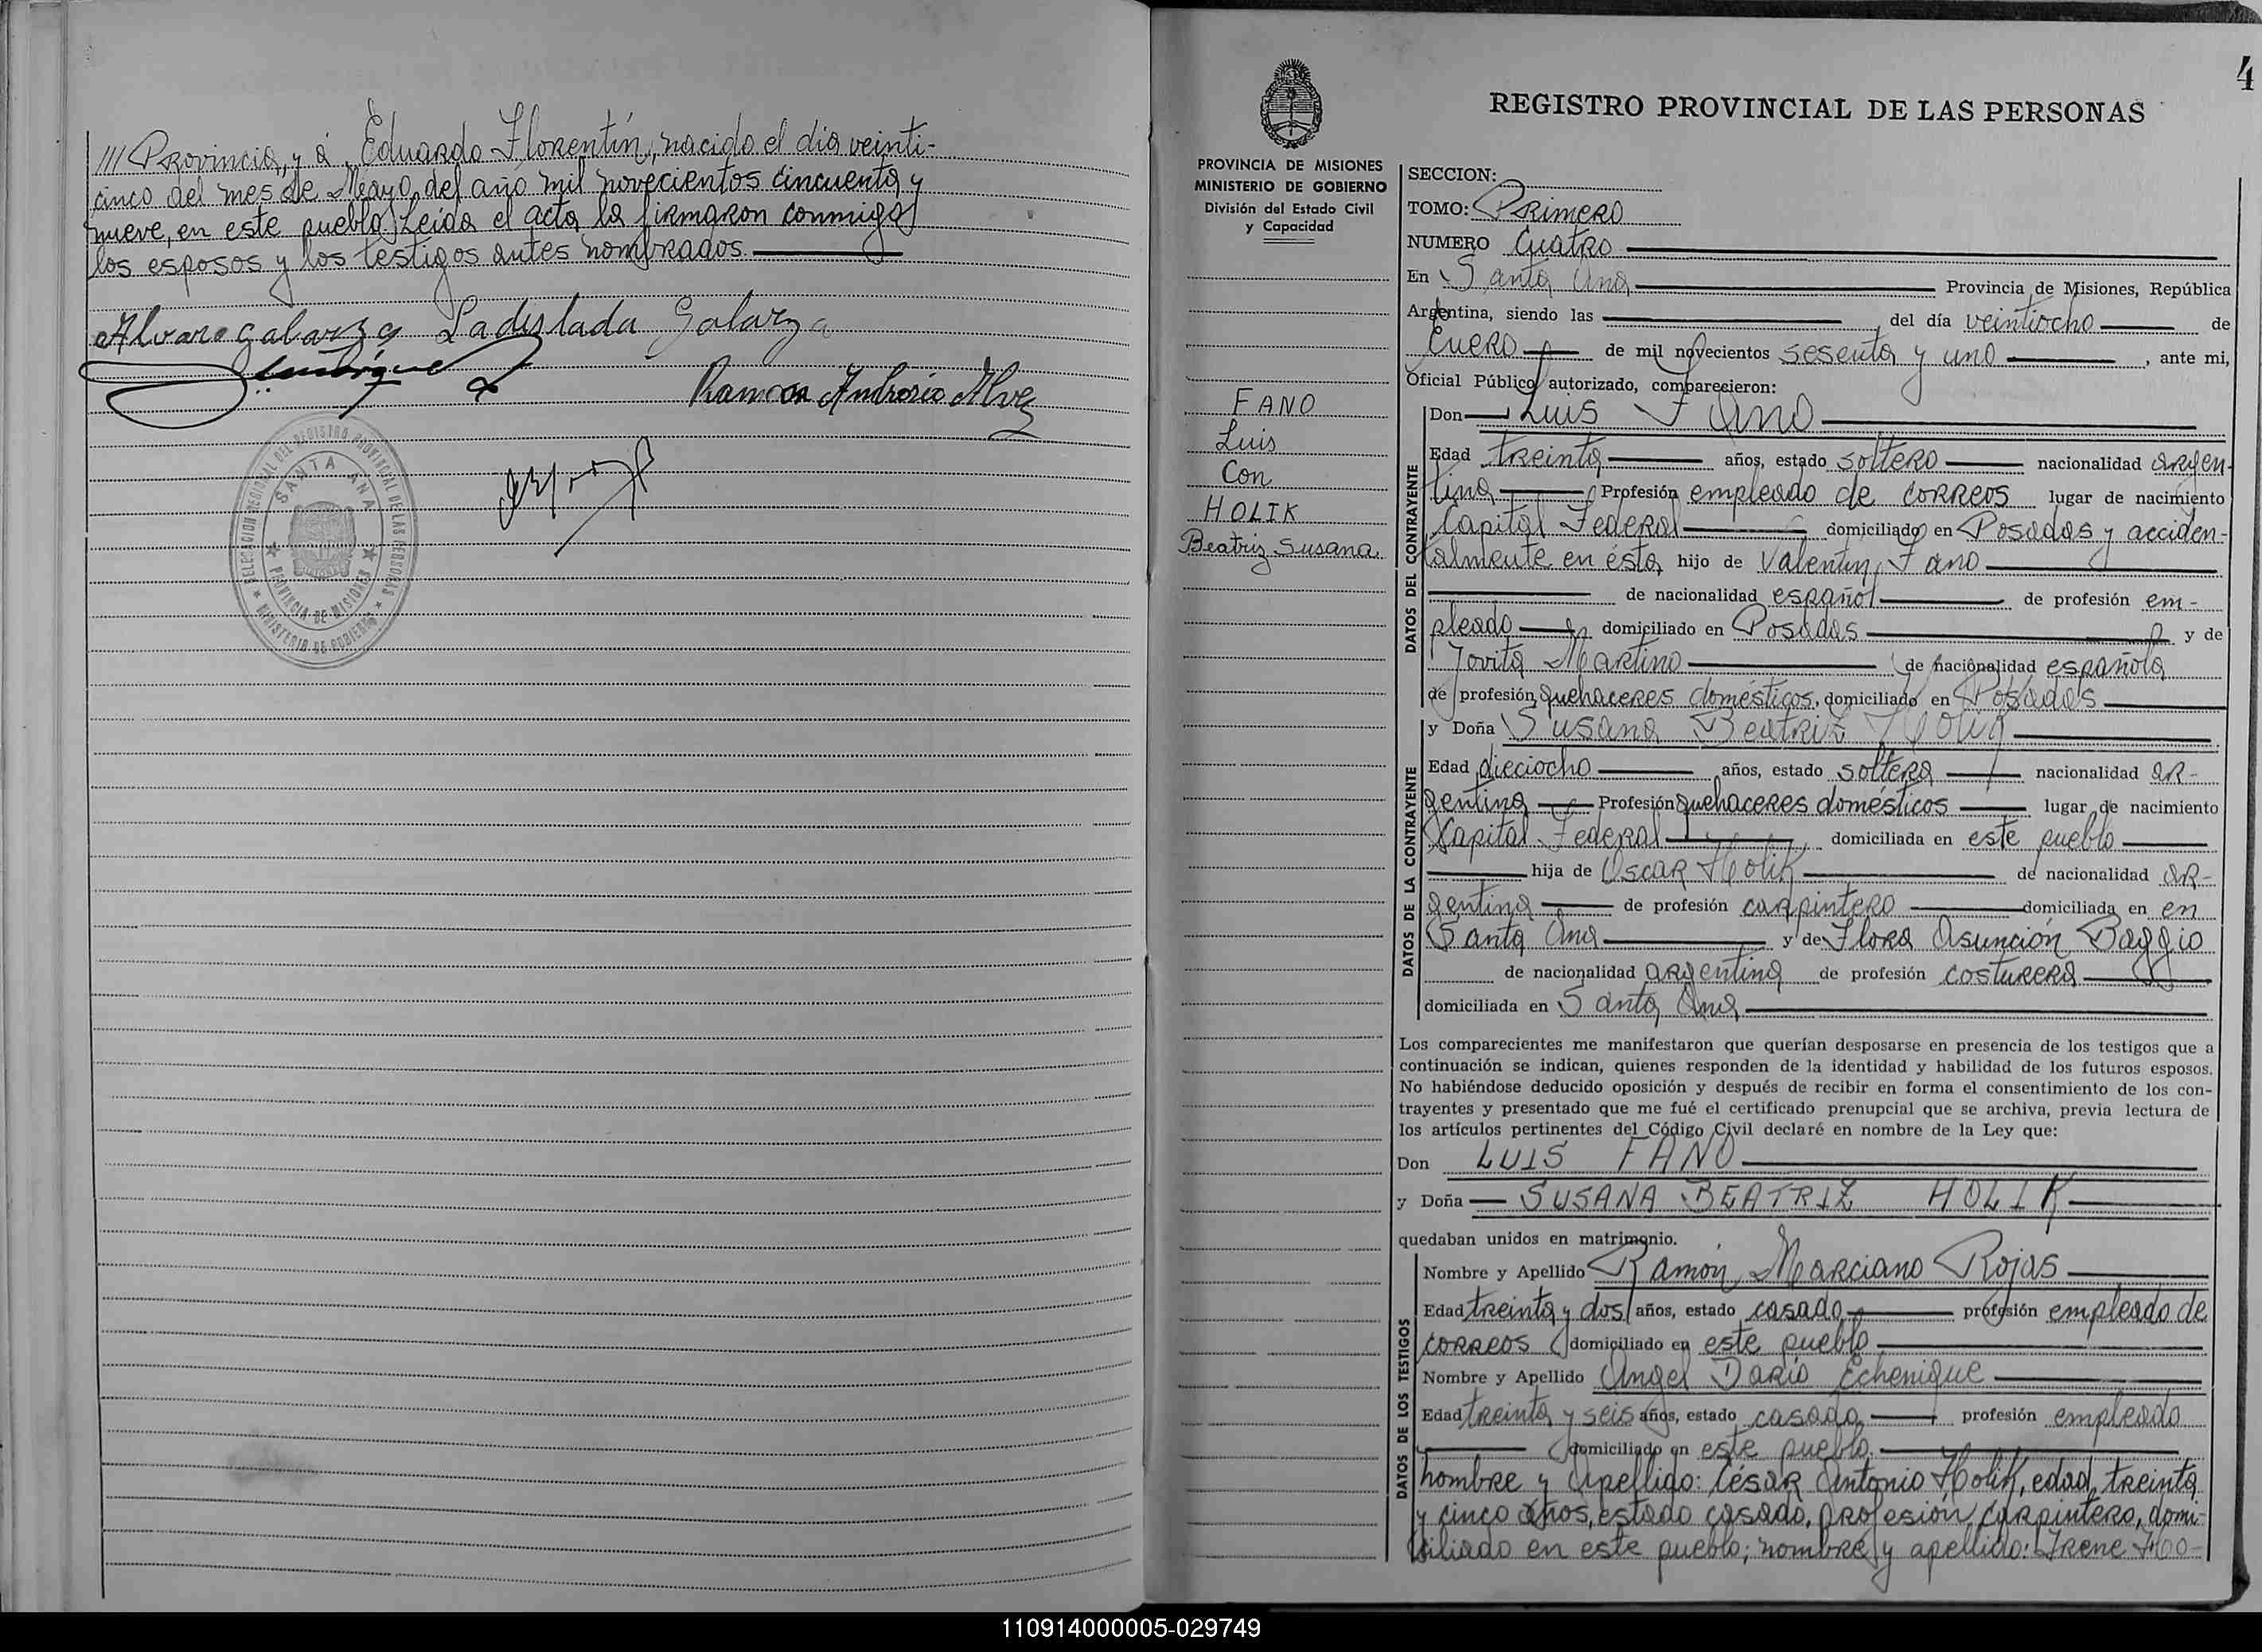 /// Provincia, y á Eduardo Florentín, nacido el día veinti-
cinco del mes de Mayo, del año mil novecientos cincuenta y
nueve, en este pueblo. Leída el acta, la firmaron conmigo
los esposos y los testigos antes nombrados.
Alvaro galarza Ladislada Galarza
Ramon Ambrosio Alvez
DELEGACION REGIONAL DEL REGISTRO PROVINCIAL DE LAS PERSONAS
SANTA ANA
PROVINCIA DE MISIONES
MINISTERIO DE GOBIERNO
4
REGISTRO PROVINCIAL DE LAS PERSONAS
PROVINCIA DE MISIONES
MINISTERIO DE GOBIERNO
División del Estado Civil
y Capacidad
FANO
Luis
Con
HOLIK
Beatriz Susana
SECCION:
TOMO: Primero
NUMERO Cuatro
En Santa Ana Provincia de Misiones, República
Argentina, siendo las del día veintiocho de
Enero de mil novecientos sesenta y uno, ante mi,
Oficial Público autorizado, comparecieron:
DATOS DEL CONTRAYENTE
Don Luis Fano
Edad treinta años, estado soltero nacionalidad argen-
tina Profesión empleado de correos lugar de nacimiento
Capital Federal domiciliado en Posadas y acciden-
talmente en ésta, hijo de Valentin Fano
de nacionalidad español de profesión em-
pleado domiciliado en Posadas y de
Jovita Martino de nacionalidad española
de profesión quehaceres domésticos, domiciliado en Posadas
DATOS DE LA CONTRAYENTE
y Doña Susana Beatriz Holik
Edad dieciocho años, estado soltera nacionalidad ar-
gentina Profesión quehaceres domésticos lugar de nacimiento
Capital Federal domiciliada en este pueblo
hija de Oscar Holik de nacionalidad ar-
gentina de profesión carpintero domiciliada en en
Santa Ana y de Flora Asunción Baggio
de nacionalidad argentina de profesión costurera
domiciliada en Santa Ana
Los comparecientes me manifestaron que querían desposarse en presencia de los testigos que a
continuación se indican, quienes responden de la identidad y habilidad de los futuros esposos.
No habiéndose deducido oposición y después de recibir en forma el consentimiento de los con-
trayentes y presentado que me fué el certificado prenupcial que se archiva, previa lectura de
los artículos pertinentes del Código Civil declaré en nombre de la Ley que:
Don LUIS FANO
y Doña SUSANA BEATRIZ HOLIK
quedaban unidos en matrimonio.
DATOS DE LOS TESTIGOS
Nombre y Apellido Ramón Marciano Rojas
Edad treinta y dos años, estado casado profesión empleado de
correos domiciliado en este pueblo
Nombre y Apellido Angel Darío Echenique
Edad treinta y seis años, estado casado profesión empleado
domiciliado en este pueblo.
nombre y Apellido: César Antonio Holik, edad treinta
y cinco años, estado casado, profesión carpintero, domi-
ciliado en este pueblo; nombre y apellido: Irene Hoo-
110914000005-029749